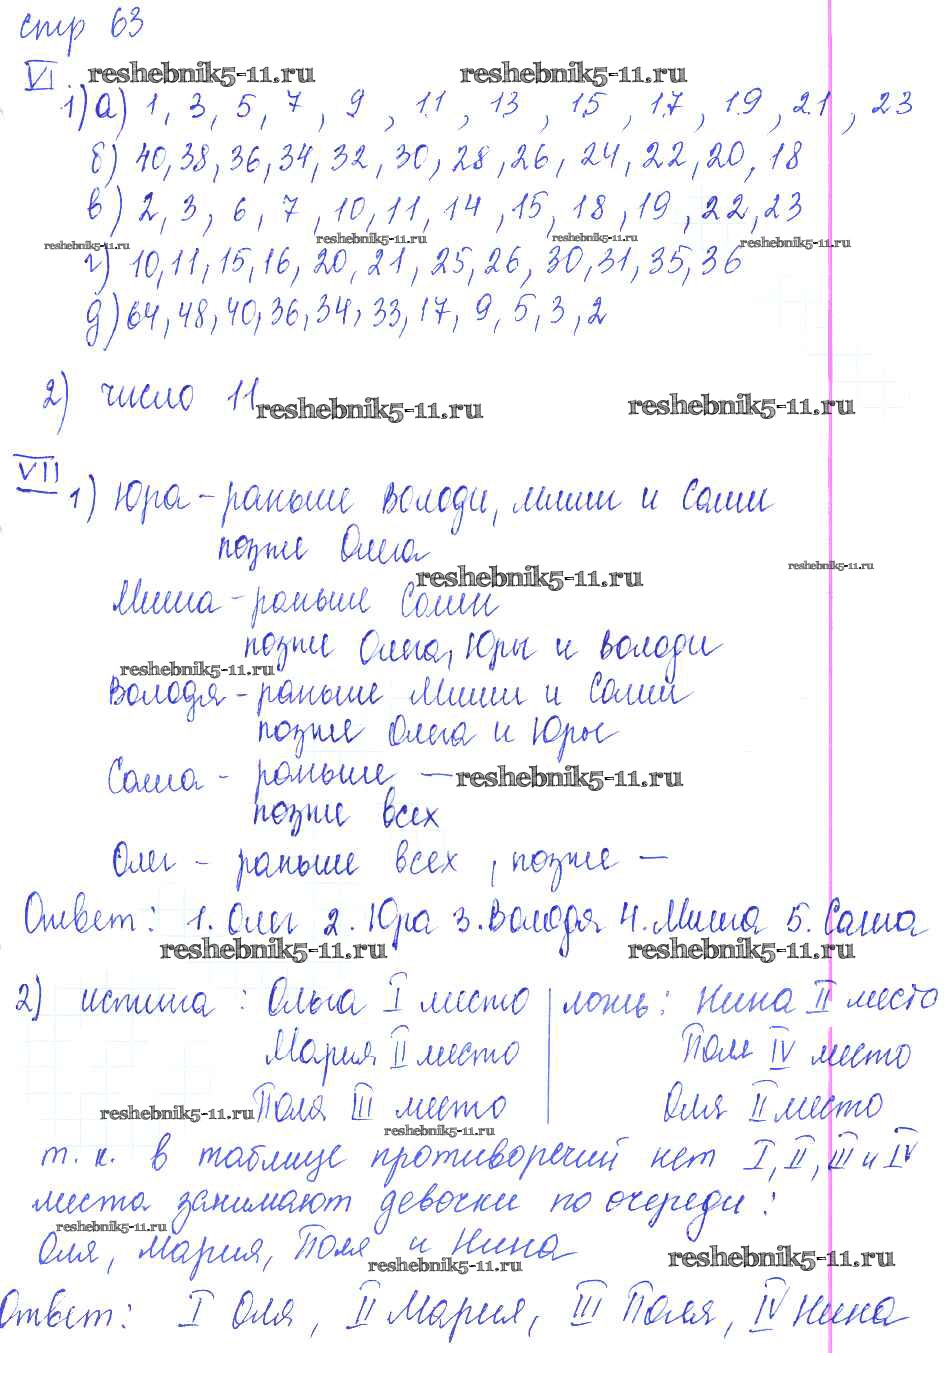 стр 63
VI. reshebnik5-11.ru reshebnik5-11.ru
1) а) 1, 3, 5, 7, 9, 11, 13, 15, 17, 19, 21, 23
б) 40, 38, 36, 34, 32, 30, 28, 26, 24, 22, 20, 18
в) 2, 3, 6, 7, 10, 11, 14, 15, 18, 19, 22, 23
reshebnik5-11.ru reshebnik5-11.ru reshebnik5-11.ru reshebnik5-11.ru
г) 10, 11, 15, 16, 20, 21, 25, 26, 30, 31, 35, 36
д) 64, 48, 40, 36, 34, 33, 17, 9, 5, 3, 2
2) число 11
reshebnik5-11.ru reshebnik5-11.ru
VII
1) Юра - раньше Володи, Миши и Саши
позже Олега
reshebnik5-11.ru reshebnik5-11.ru
Миша - раньше Саши
позже Олега, Юры и Володи
reshebnik5-11.ru
Володя - раньше Миши и Саши
позже Олега и Юры
Саша - раньше — reshebnik5-11.ru
позже всех
Олег - раньше всех, позже —
Ответ: 1. Олег 2. Юра 3. Володя 4. Миша 5. Саша
reshebnik5-11.ru reshebnik5-11.ru
2) истина: Ольга I место | ложь: Нина II место
Мария II место Поля IV место
reshebnik5-11.ru Поля III место Оля II место
reshebnik5-11.ru
т. к. в таблице противоречий нет I, II, III и IV
места занимают девочки по очереди:
reshebnik5-11.ru
Оля, Мария, Поля и Нина
reshebnik5-11.ru reshebnik5-11.ru
Ответ: I Оля, II Мария, III Поля, IV Нина